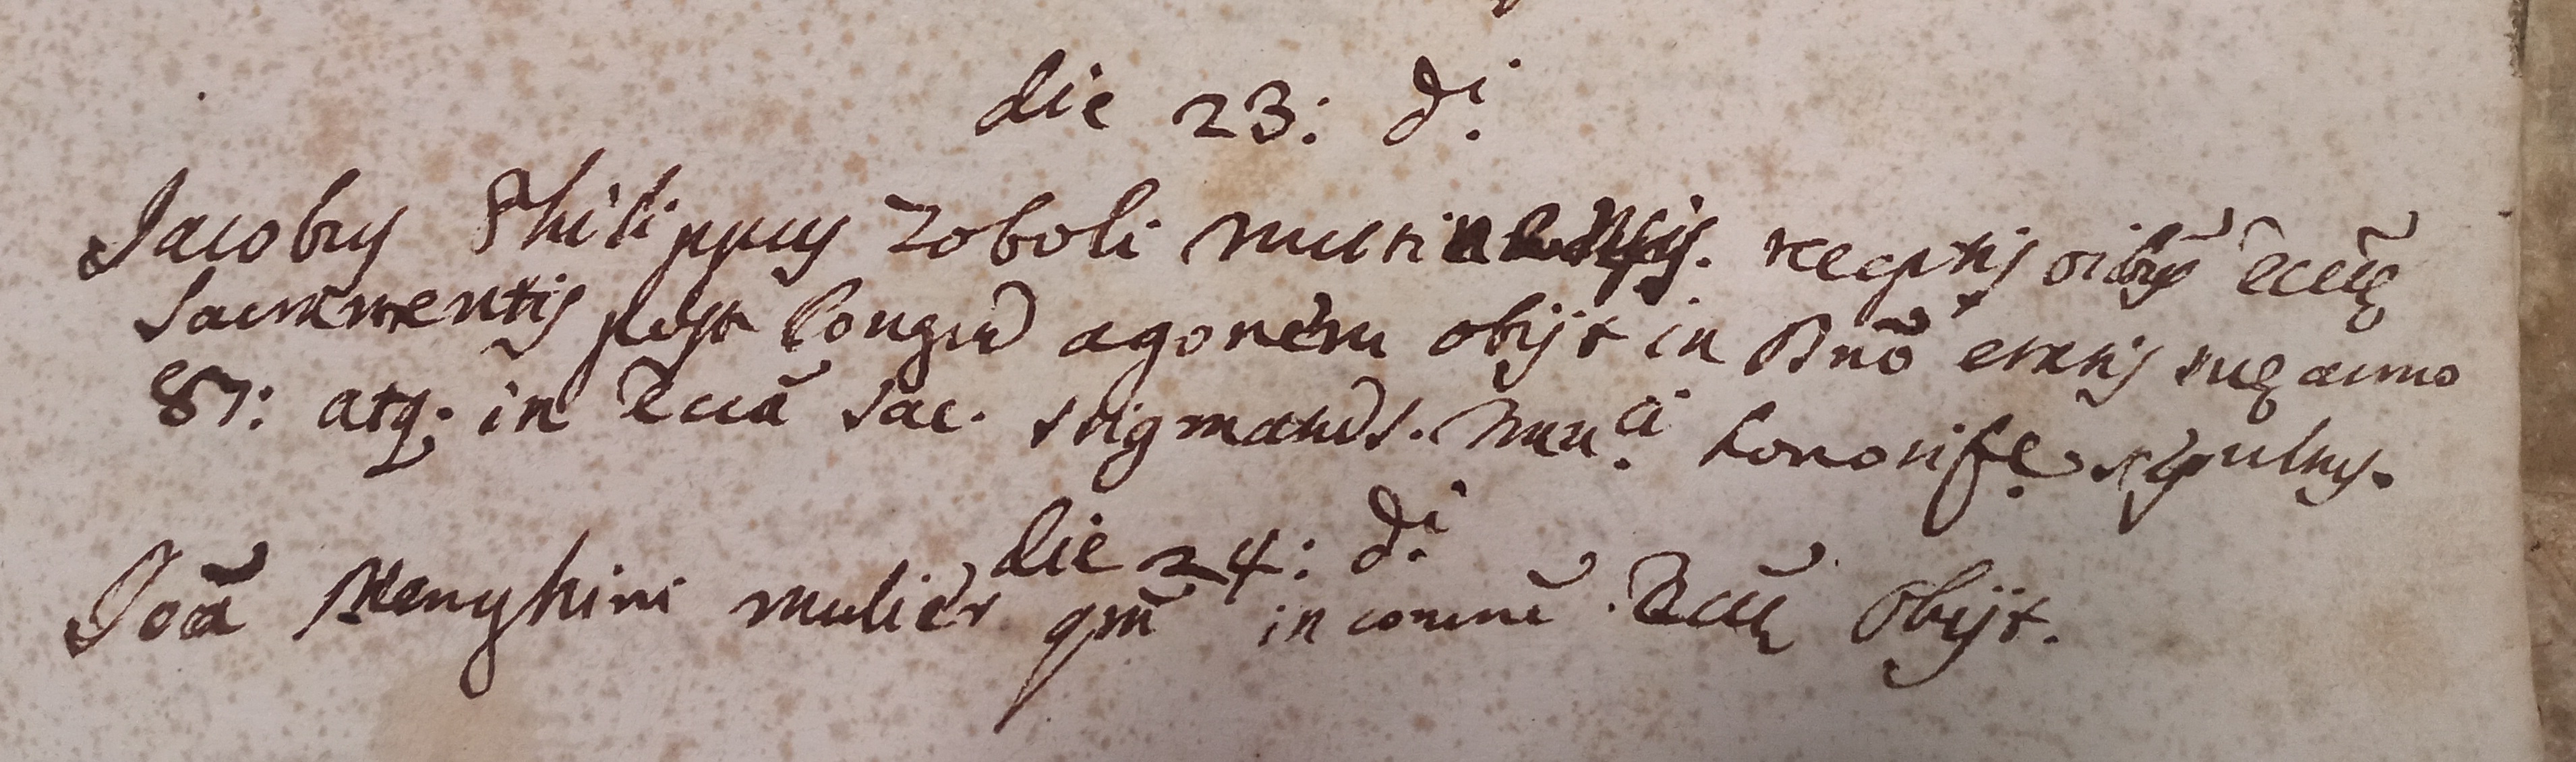 die 23: d.i
Jacobus Philippus Zoboli mutinensis. receptis oibus Ecclę
Sacramentis post longũ agonem obijt in Dnõ etatis suę anno
87: atq; in Eccã Sac. stigmatũ s. Mun.ci honorifę sepultus.
die 24: d.i
Joã Menghini mulier qm̃ in comunẽ Eccłę obijt.